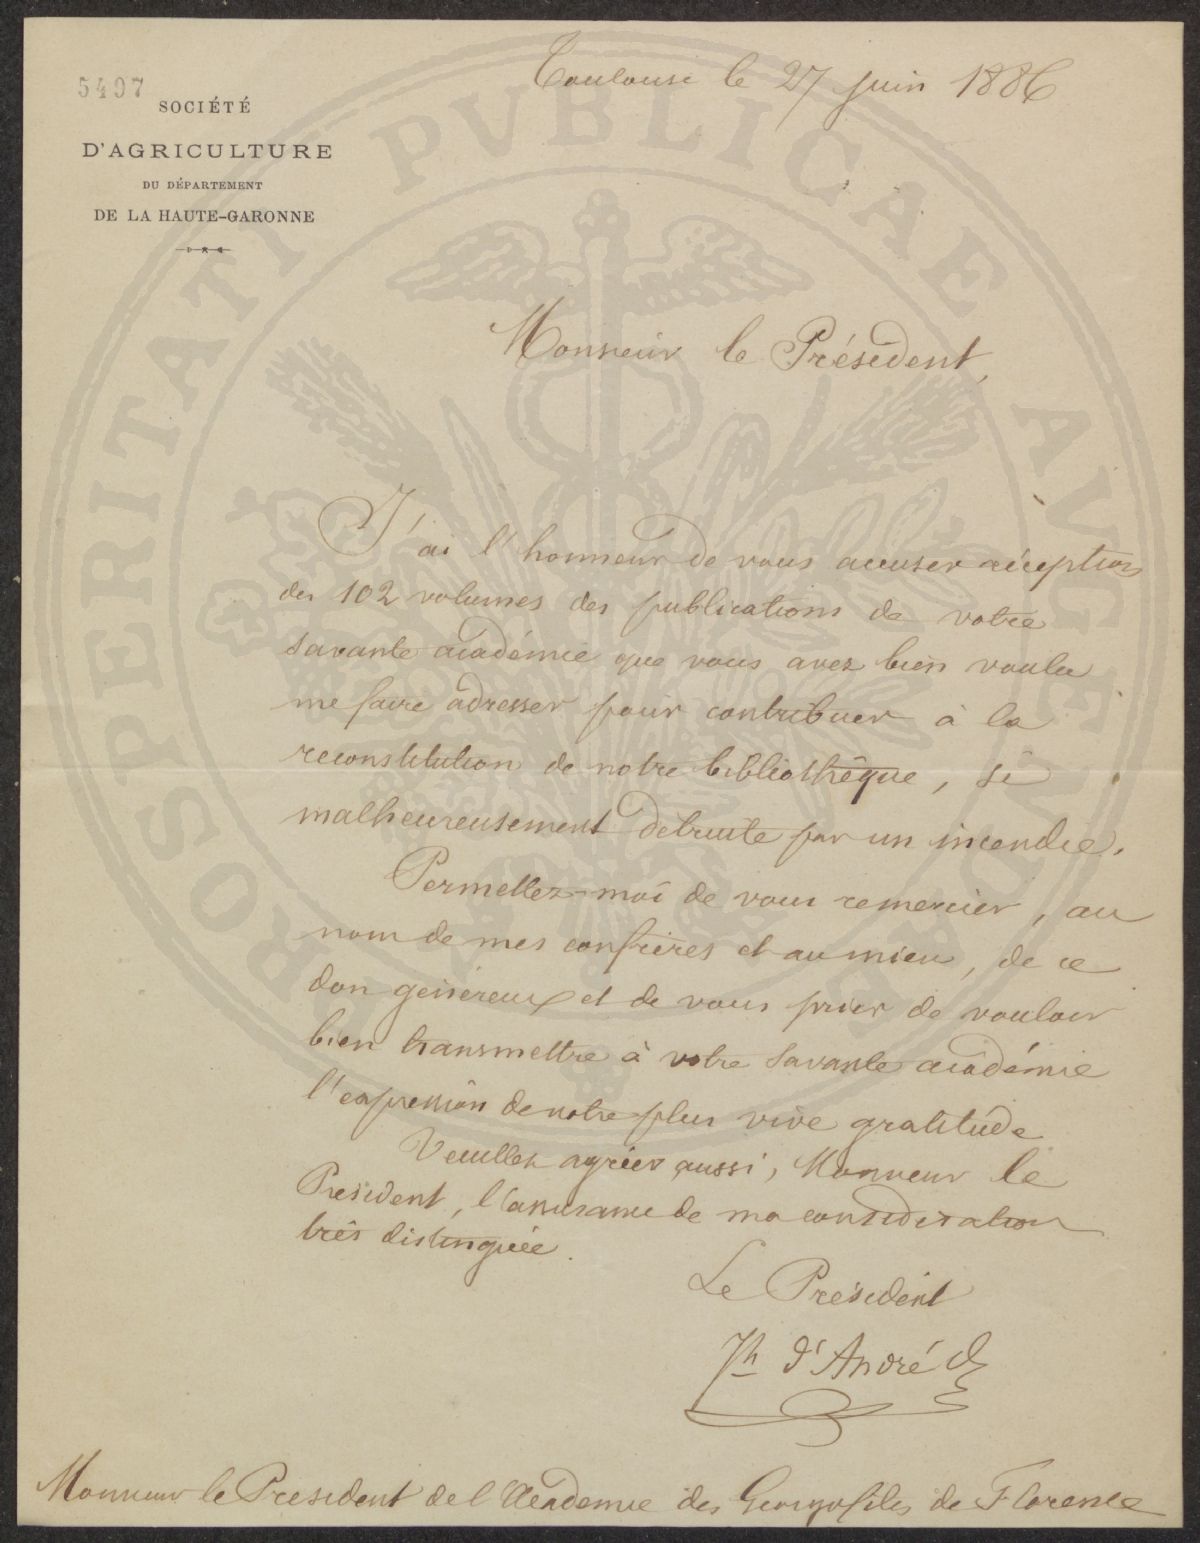 5497
SOCIÉTÉ
D'AGRICULTURE
DU DÉPARTEMENT
DE LA HAUTE-GARONNE
Toulouse le 27 juin 1886
PROSPERITATI PVBLICAE AVGENDAE
Monsieur le Président,
J'ai l'honneur de vous accuser réception
des 102 volumes des publications de votre
savante académie que vous avez bien voulu
me faire adresser pour contribuer à la
reconstitution de notre bibliothèque, si
malheureusement détruite par un incendie.
Permettez-moi de vous remercier, au
nom de mes confrères et au mien, de ce
don généreux et de vous prier de vouloir
bien transmettre à votre savante académie
l'expression de notre plus vive gratitude
Veuillez agréer aussi, Monsieur le
Président, l'assurance de ma considération
très distinguée.
Le Président
Jh d'André
Monsieur le President de l'Academie des Georgofiles de Florence